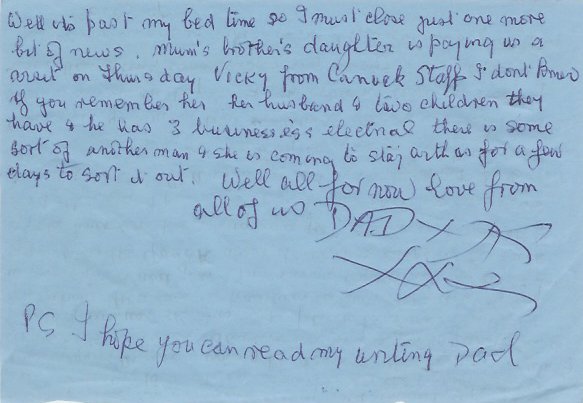 Well its past my bed time so I must close just one more
bit of news. Mum's brother's daughter is paying us a
visit on Thursday Vicky from Canock Staff I dont know
if you remember her her husband & two children they
have & he has 3 businessess electrial there is some
sort of another man & she is coming to stay with us for a few
days to sort it out. Well all for now love from
all of us DAD X
XX
PS I hope you can read my writing Dad